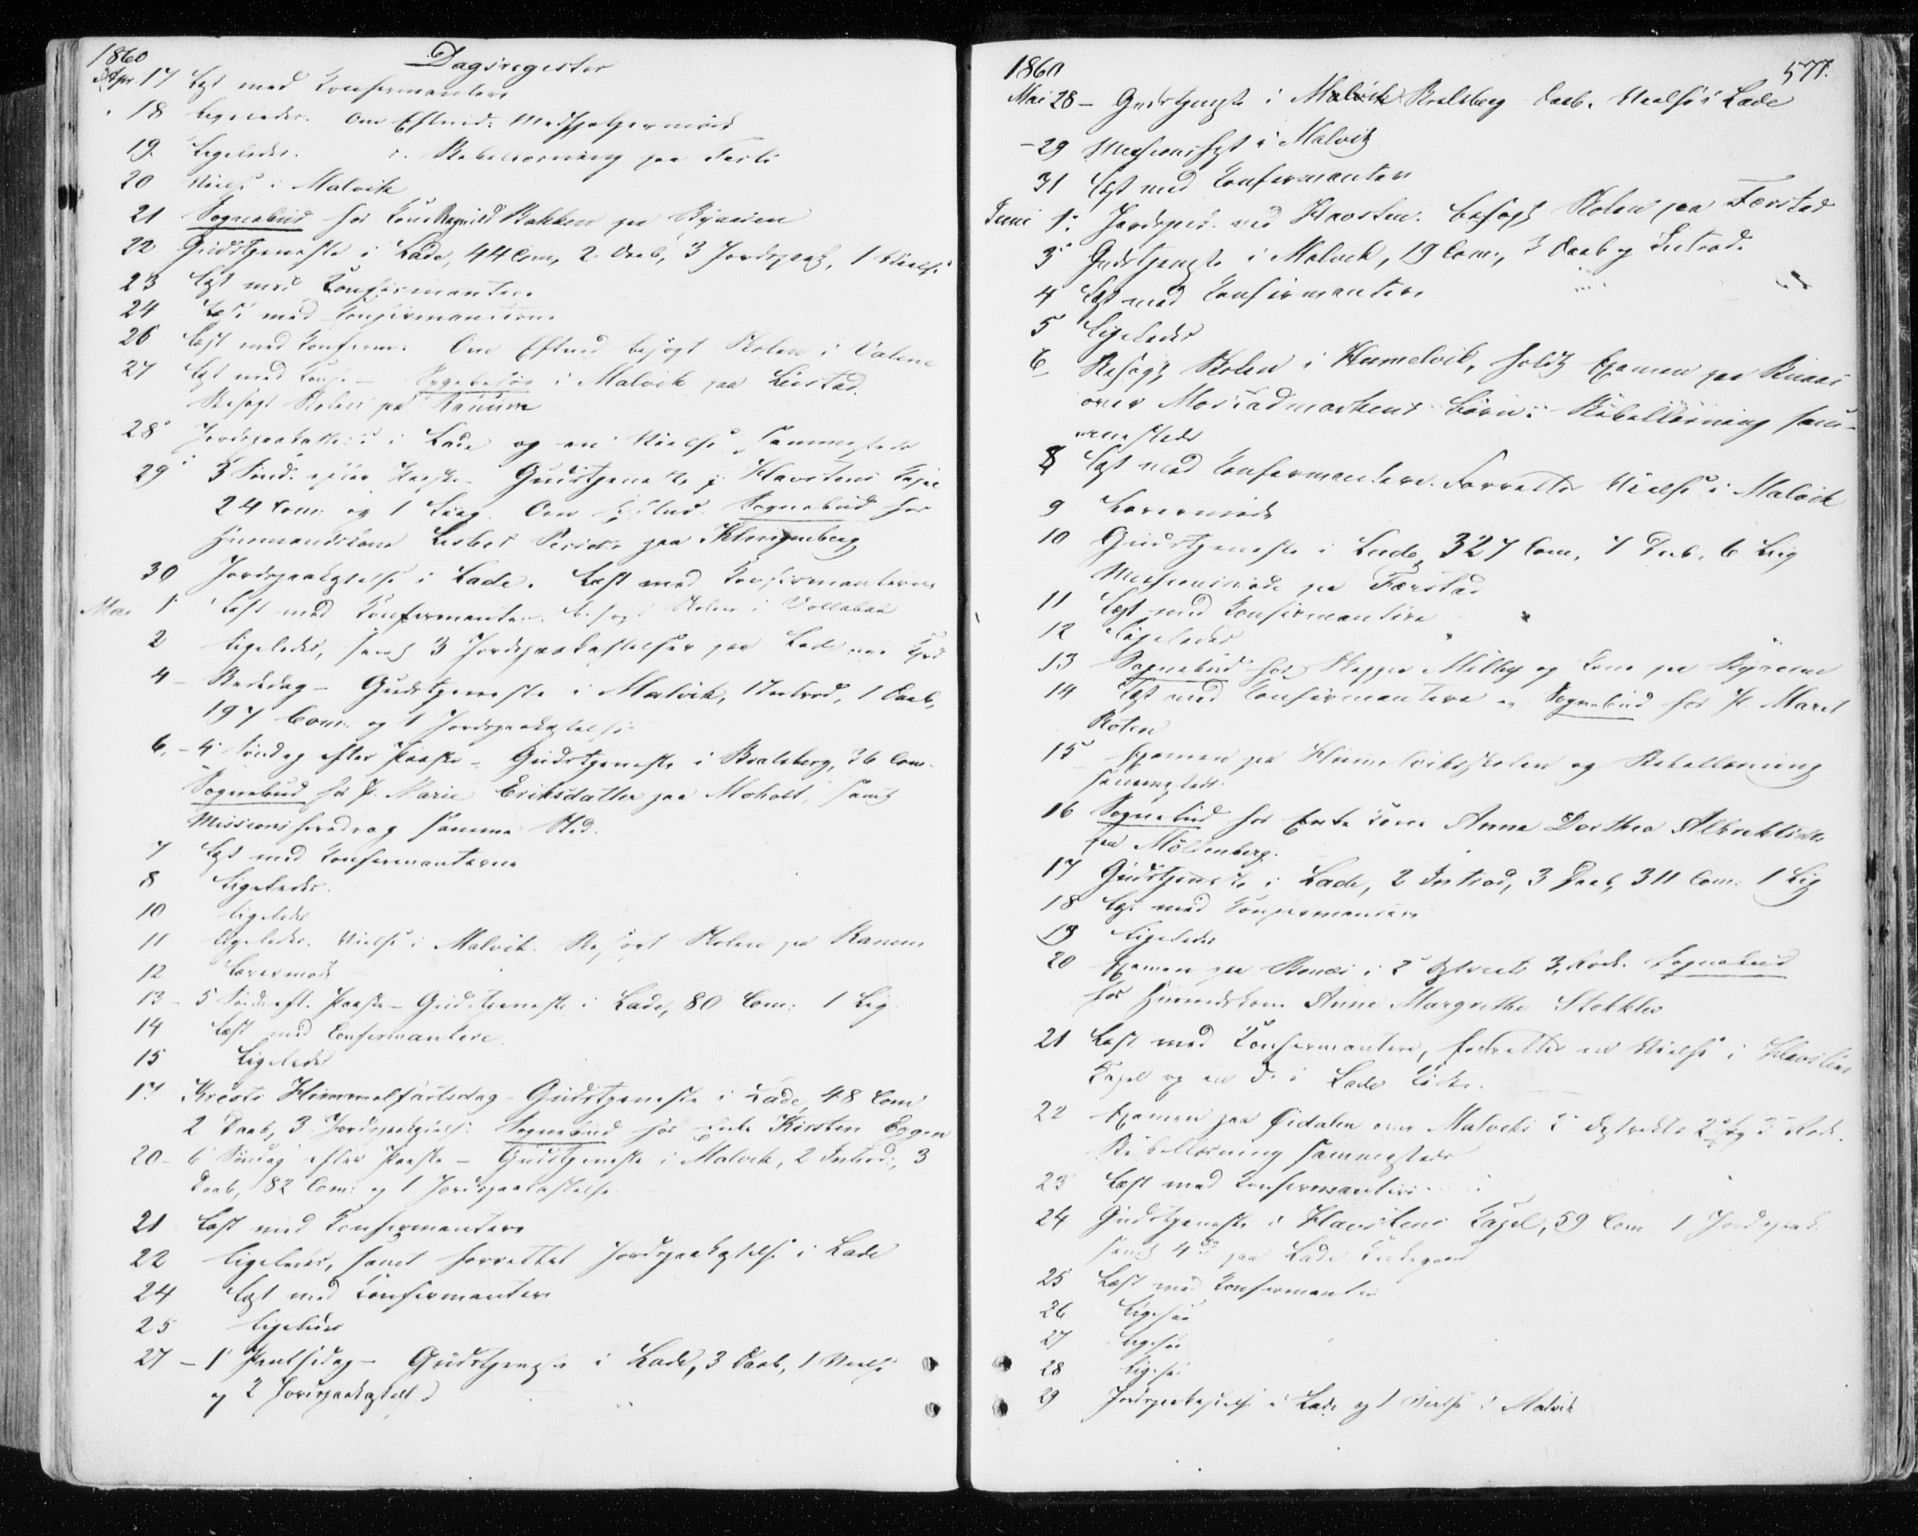 1860
Dagsregister
Apr. 17 Læst med Confirmantere
18 Ligeledes. Om Eftmid: Medhjelpermøde
19 Ligeledes. Bibellæsning paa
20 Vielse i Malvik
21 Sognebud hos Kone Ragnild Bakken paa Byaasen
22 Gudstjeneste i Lade, 44 Com, 2 Daab, 3 Jordspaak, 1 Vielse
23 Læst med Confirmantere
24 Læst med Confirmanterne
26 Læst med Confirm: Om Eftmid besøgt Skolen i
27 Læst med Conf. – Sygebesøg i Malvik paa Leistad.
Besøgt Skolen paa Ranum
28 Jordspaakastelse i Lade og en Vielse sammesteds
29 3 Sønd: efter Paaske. Gudstjeneste i Havstens Capel
24 Com: og 1 Liig. Om Eftmd. Sognebud hos
Huusmandskone Lisbet paa Klingenberg
30 Jordspaakastelse i Lade. Læst med Confirmanterne
Mai 1 Læst med Confirmanter. besøgt Skolen i
2 Ligeledes, samt 3 Jordspaakastelser paa Lade
4 – Bededag – Gudstjeneste i Malvik, 1 Introd, 1 Daab,
197 Com: og 1 Jordspaakastelse
6. – 4 Søndag efter Paaske – Gudstjeneste i Bratsberg, 36 Com.
Sognebud hos P. Marie Eriksdatter paa Moholt, samt
Missionsforedrag samme Sted.
7 Læst med Confirmanterne
8 Ligeledes.
10 Ligeledes
11 Ligeledes. Vielse i Malvik. Besøgt Skolen paa Ranum
12 Lærermøde
13 – 5 Sønd: eft. Paaske – Gudstjeneste i Lade, 80 Com: 1 Lig
14 Læst med Confirmantere.
15 Ligeledes
17 Kristi Himmelfartsdag – Gudstjeneste i Lade, 48 Com
2 Daab, 3 Jordspaakastelse: Sognebud hos Enke Kirsten
20 – 6 Søndag efter Paaske – Gudstjeneste i Malvik, 2 Introd:, 3
Daab, 82 Com: og 1 Jordspaakastelse
21 Læst med Confirmantere
22 Ligeledes, samt forrettet Jordspaakastelse i Lade
24 Læst med Confirmantere
25 Ligeledes
27 – 1 Pintsedag – Gudstjeneste i Lade, 3 Daab, 1 Vielse
og 2 Jordspaakastelse
1860 577.
Mai 28 – Gudstjeneste i Malvik Bratsberg Daab. Vielse i Lade
– 29 Missionsfest i Malvik
31 Læst med Confirmanter
Juni 1. Jordspaak. ved Havsten. besøgt Skolen paa Færstad
3 Gudstjeneste i Malvik, 19 Com:, 3 Daab og Introd.
4 Læst med Confirmantere
5 Ligeledes
6 Besøgt Skolen i Hummelvik, holdt Examen paa
over Mostadmarkens Børn: Bibellæsning sam-
mesteds
8 Læst med Confirmantere. Forrettet Vielse i Malvik
9 Lærermøde
10 Gudstjeneste i Lade 327 Com, 7 Daab, 6 Liig
Missionsmøde paa Færstad
11 Læst med Confirmantere
12 Ligeledes
13 Sognebud hos og Kone paa Byaasen
14 Læst med Confirmantere og Sognebud hos P. Maret
Roten
15 Examen paa Hummelviksskolen og Bibellæsning
sammesteds.
16 Sognebud hos Enke Kone Anna Dorthea Albrektsdtr
paa Møllenberg.
17 Gudstjeneste i Lade, 2 Introd, 3 Daab, 311 Com: 1 Lig
18 Læst med Confirmantere
19 Ligeledes
20 Examen paa i 2 Distrikts 3. Rode. Sognebud
hos Huusmandskone Anne Margrethe
21 Læst med Confirmantere, forrettet en Vielse i Havstens
Capel og en Do i Lade Kirke.
22 Examen paa over Malviks Distrikts 2 og 3 Rode.
Bibellæsning sammesteds
23 Læst med Confirmantere
24 Gudstjeneste i Havstens Capel, 59 Com. 1 Jordspaak.
samt 4 paa Lade Kirkegaard
25 Læst med Confirmantere
26 Ligesaa
27 Ligesaa
28 Ligesaa
29 Jordspaakastelse i Lade og 1 Vielse i Malvik